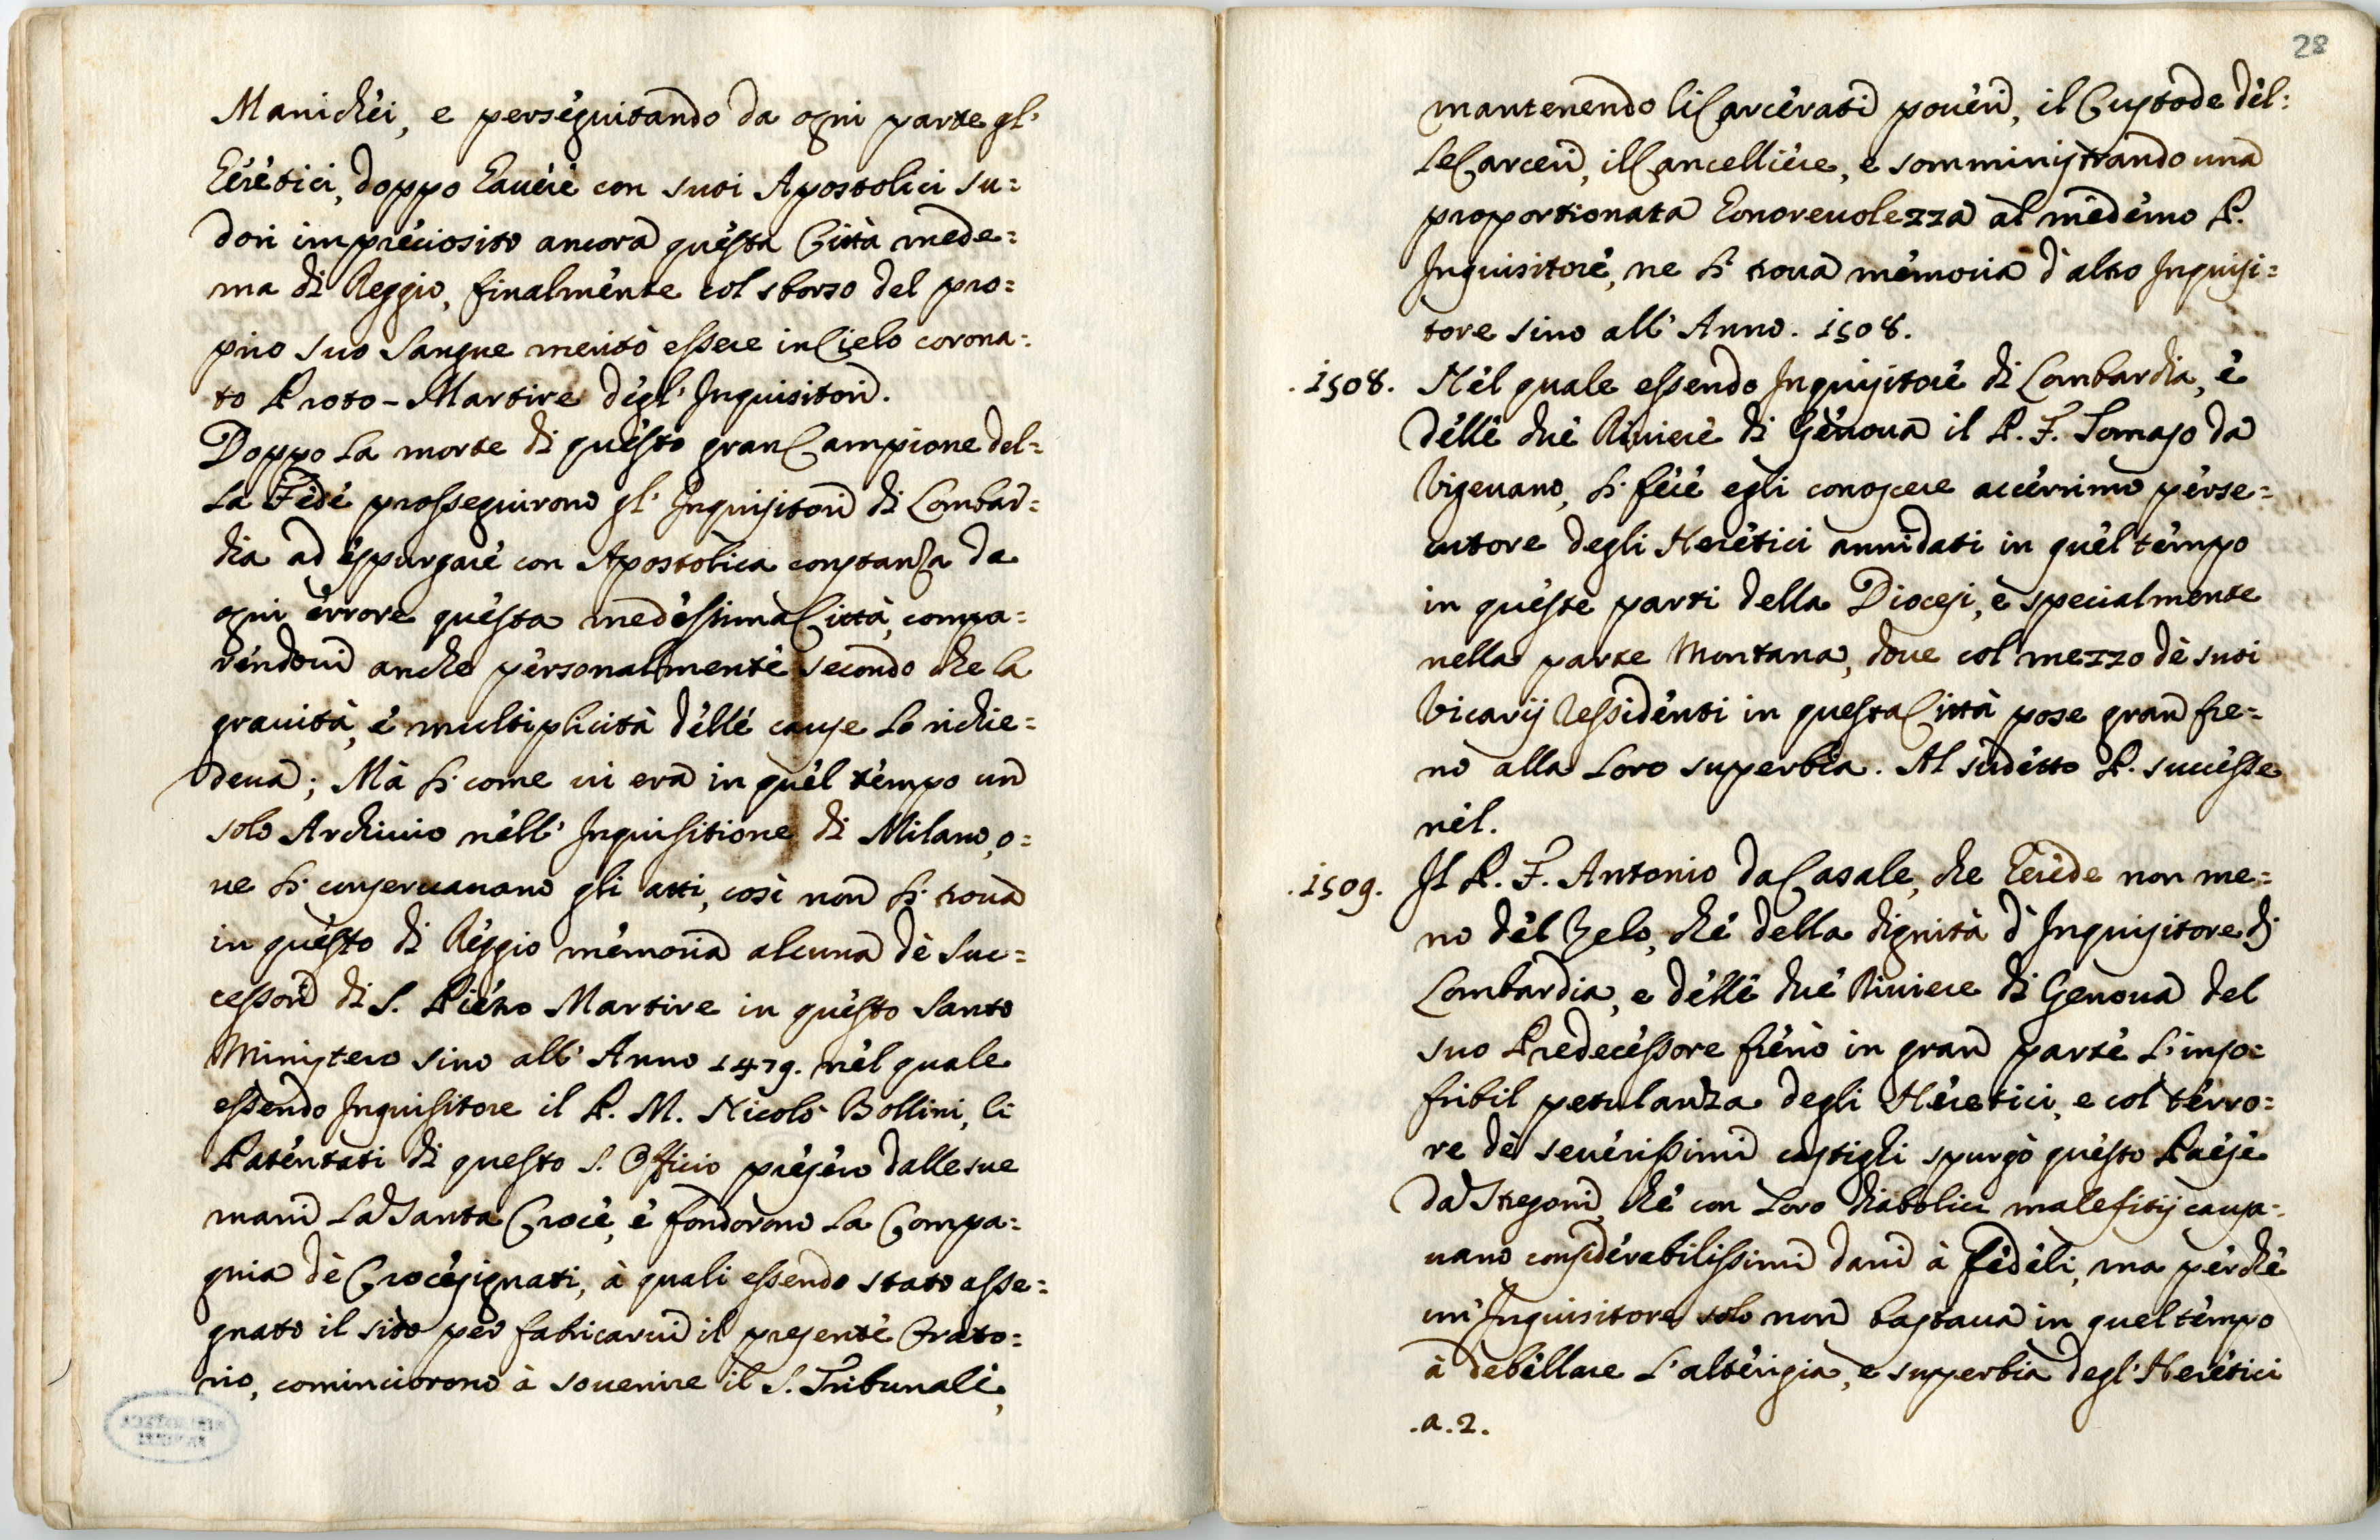 Manichei, e perseguitando da ogni parte gl'
Eretici, doppo havere con suoi Apostolici su=
dori impreciosito ancora questa Città mede=
ma di Reggio, finalmente col sborso del pro=
prio suo Sangue meritò essere in Cielo corona=
to Proto-Martire degl' Inquisitori.
Doppo la morte di questo gran Campione del=
la Fede prosseguirono gl' Inquisitori di Lombar=
dia ad espurgare con Apostolica constanza da
ogni errore questa medessima Città, compa=
rendovi anche personalmente secondo che la
gravità, e multiplicità delle cause lo richie=
deva; Mà si come vi era in quel tempo un
solo Archivio nell' Inquisitione di Milano, o=
ve si conservavano gli atti, così non si trova
in questo di Reggio memoria alcuna dè Suc=
cessori di S. Pietro Martire in questo Santo
Ministero sino all' Anno 1479. nel quale
essendo Inquisitore il P. M. Nicolò Bollini, li
Patentati di questo S. Officio presero dalle sue
mani la Santa Croce, e fondorono la Compa=
gnia dè Crocesignati, à quali essendo stato asse=
gnato il sito per fabricarvi il presente Orato=
rio, cominciorono à sovenire il S. Tribunale,
28
mantenendo li Carcerati poveri, il Custode del=
le Carceri, il Cancelliere, e somministrando una
proportionata honorevolezza al medemo P.
Inquisitore, ne si trova memoria d'altro Inquisi=
tore sino all' Anno. 1508.
.1508. Nel quale essendo Inquisitore di Lombardia, e
delle due Riviere di Genova il P. F. Tomaso da
Vigevano, si fece egli conoscere accerrimo perse=
cutore degli Heretici annidati in quel tempo
in queste parti della Diocesi, e specialmente
nella parte Montana, dove col mezzo dè suoi
Vicarij Ressidenti in questa Città pose gran fre=
no alla loro superbia. Al sudetto P. successe
nel.
.1509. Il P. F. Antonio da Casale, che herede non me=
no del Zelo, che della dignità d'Inquisitore di
Lombardia, e delle due Riviere di Genova del
suo Predecessore frenò in gran parte l'inso=
fribil petulanza degli Heretici, e col terro=
re de severissimi castighi spurgò questo Paese
da Stregoni, che con loro diabolici malefitij causa=
vano considerabilissimi dani à fedeli, ma perche
un' Inquisitore solo non bastava in quel tempo
à debellare l'alterigia, e superbia degl' Heretici
.a.2.